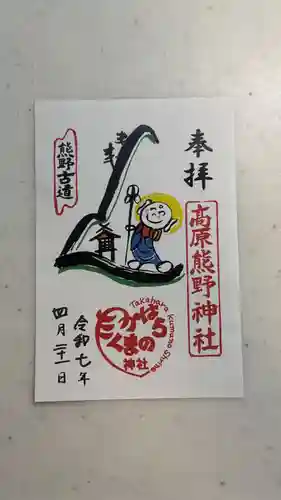 奉拝
高原熊野神社
熊野古道
たかはら
くまの
神社
Takahara Kumano Shrine
令和七年
四月二十一日